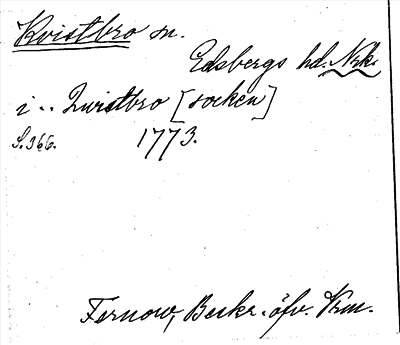 Kvistbro sn.
Edsbergs hd. Nrk.
i .. Qwistbro [socken]
S. 366. 1773.
Fernow, Beskr. öfv. Vrm.